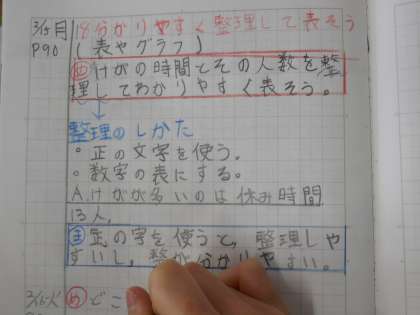 3/15月 18分かりやすく整理して表そう
P90 (表やグラフ)
めけがの時間とその人数を整
理してわかりやすく表そう。
整理のしかた
・正の文字を使う。
・数字の表にする。
A.けがが多いのは休み時間
13人,
ま正の字を使うと,整理しや
すいし,整が分かりやすい。
3/16火 めどこ